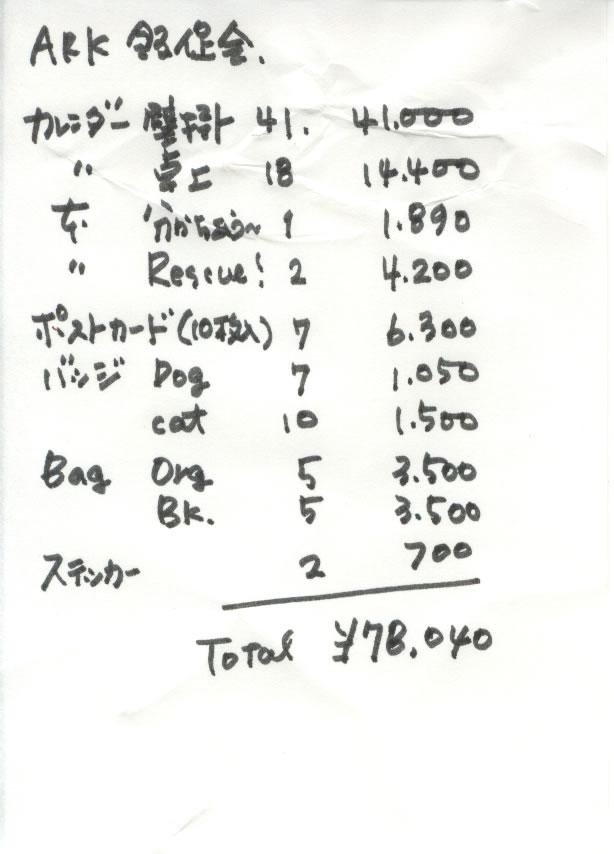 ARK
カレンダー 壁掛 41. 41.000
〃 卓上 18 14.400
本 1 1.890
〃 Rescue! 2 4.200
ポストカード(10枚入) 7 6.300
バッジ Dog 7 1.050
cat 10 1.500
Bag Org 5 3.500
BK. 5 3.500
ステッカー 2 700
Total ¥78.040